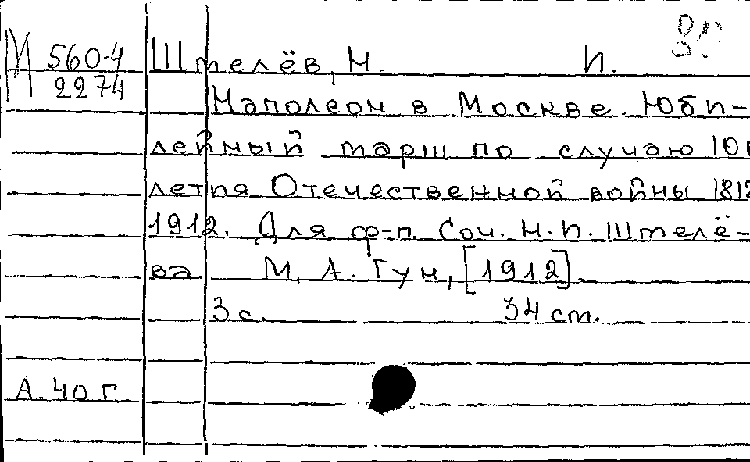 М 560-4
2274
Штелёв, Н. И.
Наполеон в Москве. Юби-
лейный марш по случаю 100
летия Отечественной войны 1812
1912. Для ф-п. Соч. Н. И. Штелё-
ва М., А. Гун, [1912].
3 с. 34 см.
А 40 г